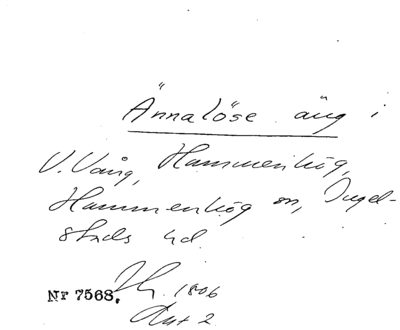 Ännalöse äng i
V. Vång, Hammenhög,
Hammenhög sn, Ingel-
stads hd.
Nr 7568. 1806
Akt 2